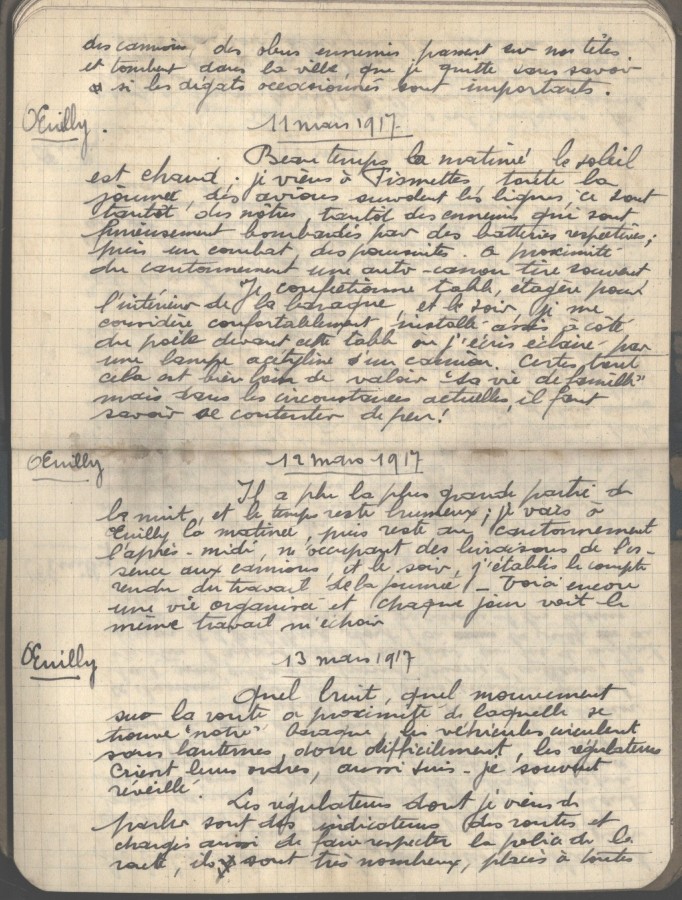 des camions, des obus ennemis passent sur nos têtes
et tombent dans la ville, que je quitte sans savoir
si les dégats occasionnés sont importants.
Œuilly.
11 mars 1917
Beau temps la matinée le soleil
est chaud. je viens à Fismettes toute la
journée, des avions survolent les lignes, ce sont
tantôt des nôtres, tantôt des ennemis qui sont
furieusement bombardés par des batteries respectives;
puis un combat, des poursuites. a proximité
du cantonnement une auto-canon tire souvent
Je confectionne table, étagère pour
l'intérieur de la baraque, et le soir, je me
considère confortablement installé assis à côté
du poêle devant cette table ou j'écris éclairé par
une lampe acétylène d'un camion. Certes tout
cela est bien loin de valoir "la vie de famille"
mais dans les circonstances actuelles, il faut
savoir se contenter de peu!
Œuilly
12 mars 1917
Il a plu la plus grande partie de
la nuit, et le temps reste brumeux; je vais à
Œuilly la matinée, puis reste au cantonnement
l'après-midi, m'occupant des livraisons de l'es-
sence aux camions, et le soir, j'établis le compte
rendu du travail de la journée - Voici encore
une vie organisée et chaque jour voit le
même travail m'échoir
Œuilly
13 mars 1917
Quel bruit, quel mouvement
sur la route a proximité de laquelle se
trouve "notre" baraque, les véhicules circulent
sans lanternes, donc difficilement, les régulateurs
crient leurs ordres, aussi suis-je souvent
réveillé.
Les régulateurs dont je viens de
parler sont des indicateurs des routes et
chargés aussi de faire respecter la police de la
route, ils sont très nombreux, placés à toutes